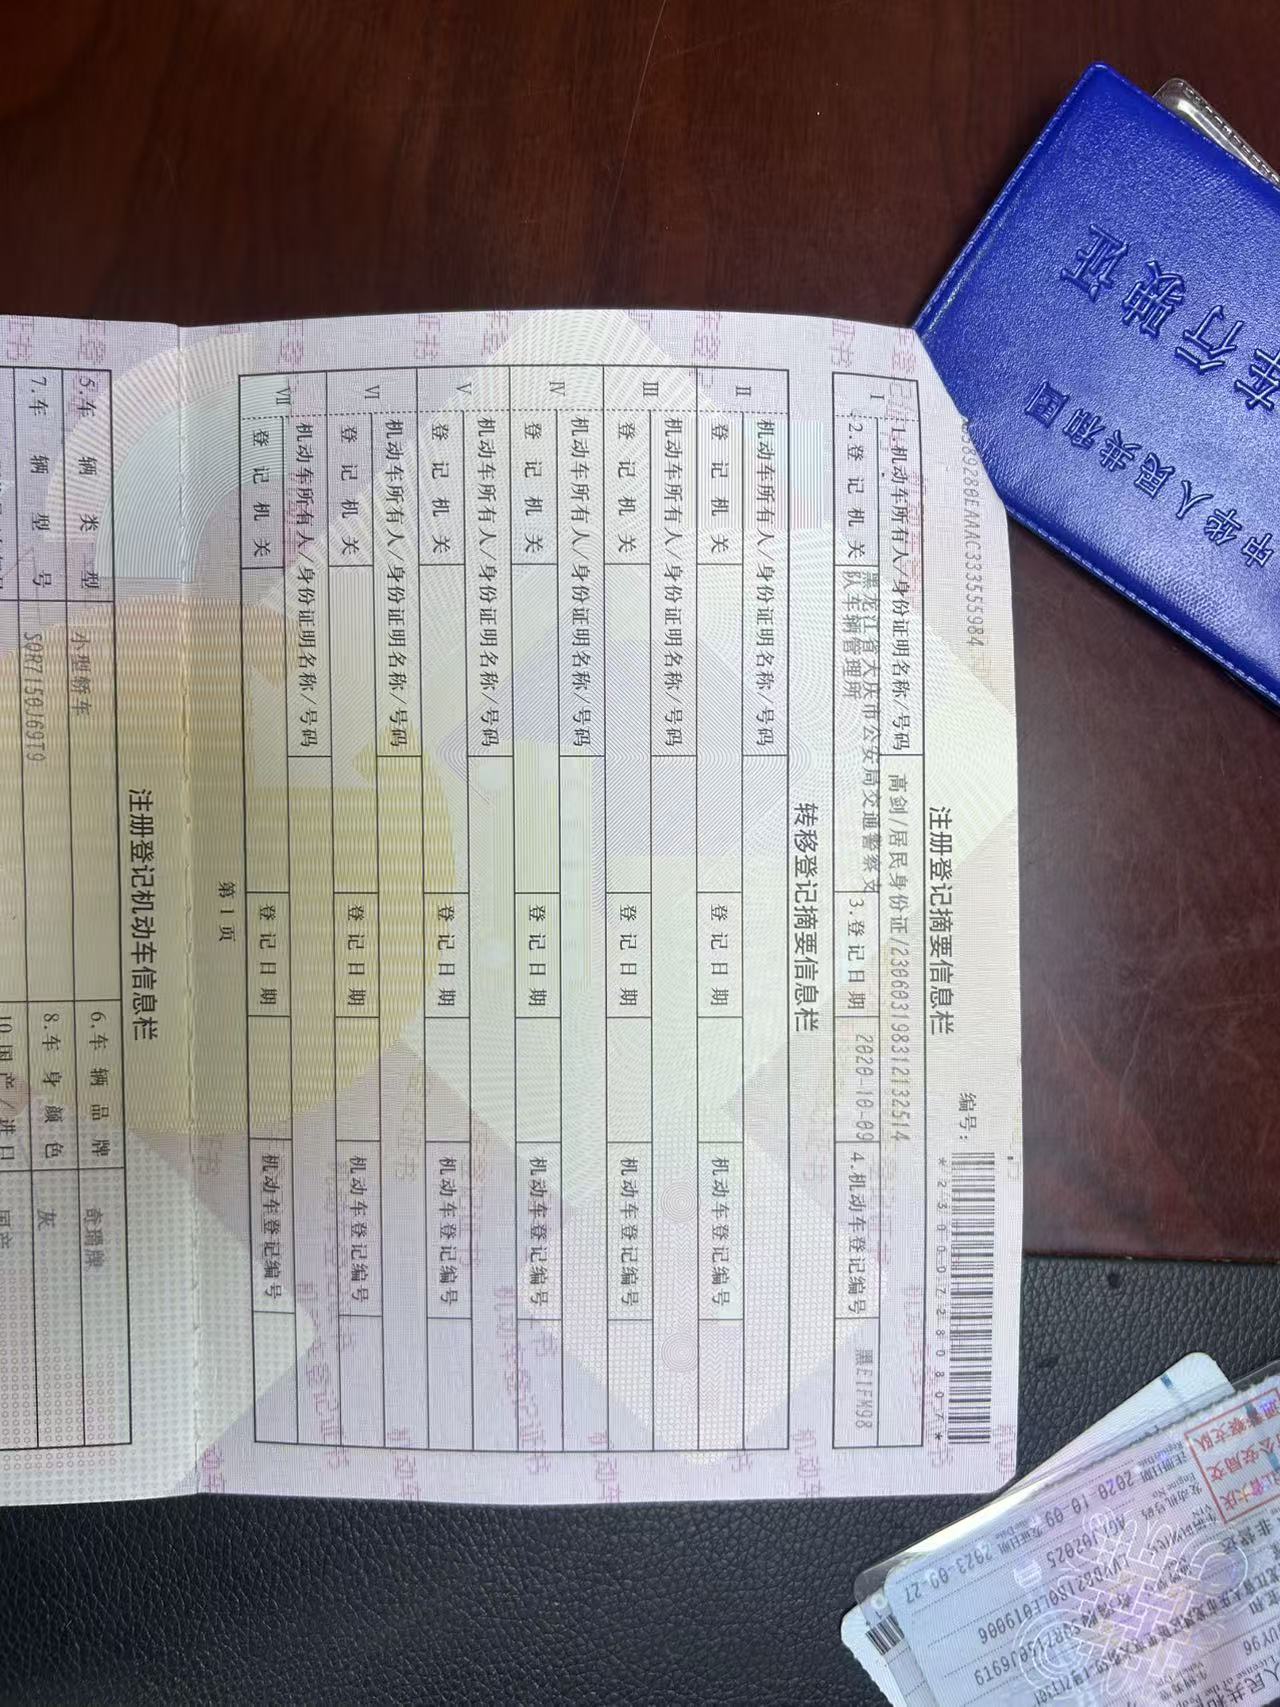 注册登记摘要信息栏
编号：
*230007280807*
Ⅰ
1.机动车所有人/身份证明名称/号码
高剑/居民身份证/230603198312132514
2.登记机关
黑龙江省大庆市公安局交通警察支
队车辆管理所
3.登记日期
2020-10-09
4.机动车登记编号
黑E1FM98
转移登记摘要信息栏
Ⅱ
机动车所有人/身份证明名称/号码
登记机关
登记日期
机动车登记编号
Ⅲ
机动车所有人/身份证明名称/号码
登记机关
登记日期
机动车登记编号
Ⅳ
机动车所有人/身份证明名称/号码
登记机关
登记日期
机动车登记编号
Ⅴ
机动车所有人/身份证明名称/号码
登记机关
登记日期
机动车登记编号
Ⅵ
机动车所有人/身份证明名称/号码
登记机关
登记日期
机动车登记编号
Ⅶ
机动车所有人/身份证明名称/号码
登记机关
登记日期
机动车登记编号
第1页
注册登记机动车信息栏
5.车辆类型
小型轿车
6.车辆品牌
奇瑞牌
7.车辆型号
SQR7150J69T9
8.车身颜色
灰
10.国产/进口
国产
中华人民共和国
车行驶证
非营运
SQR7150J69T9
LVVDB21B0LE019006
发动机号码
AGLJ02025
注册日期 2020-10-09
发证日期 2023-09-27